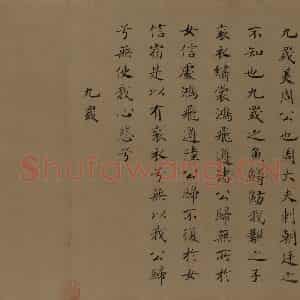 九罭美周公也周大夫刺朝廷之
不知也九罭之魚鱒魴我覯之子
袞衣繡裳鴻飛遵渚公歸無所於
女信處鴻飛遵陸公歸不復於女
信宿是以有袞衣兮無以我公歸
兮無使我心悲兮
九罭
Shufawang.CN